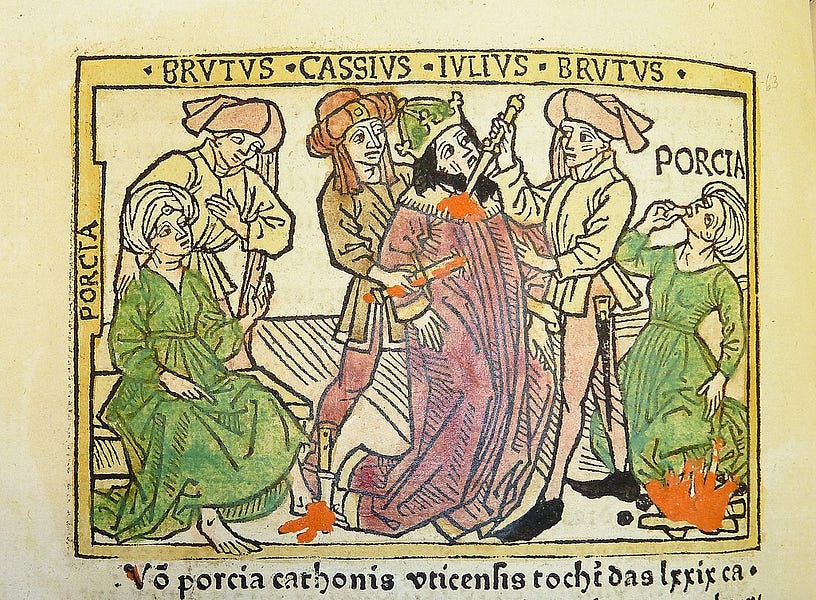 · BRVTVS · CASSIVS · IVLIVS · BRVTVS ·
PORCIA
PORCIA
Võ porcia cathonis vticensis tochť das lxxix ca·